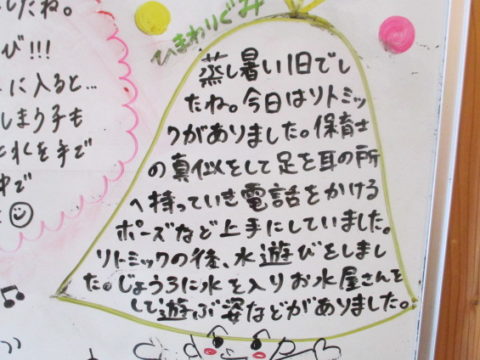 したね。
び!!!
に入ると…
しまう子も
手で
中で
ひまわりぐみ
蒸し暑い1日でし
たね。今日はリトミッ
クがありました。保育士
の真似をして足を耳の所
へ持っていき電話をかける
ポーズなど上手にしていました。
リトミックの後、水遊びをしまし
た。じょうろに水を入りお水屋さんを
して遊ぶ姿などがありました。